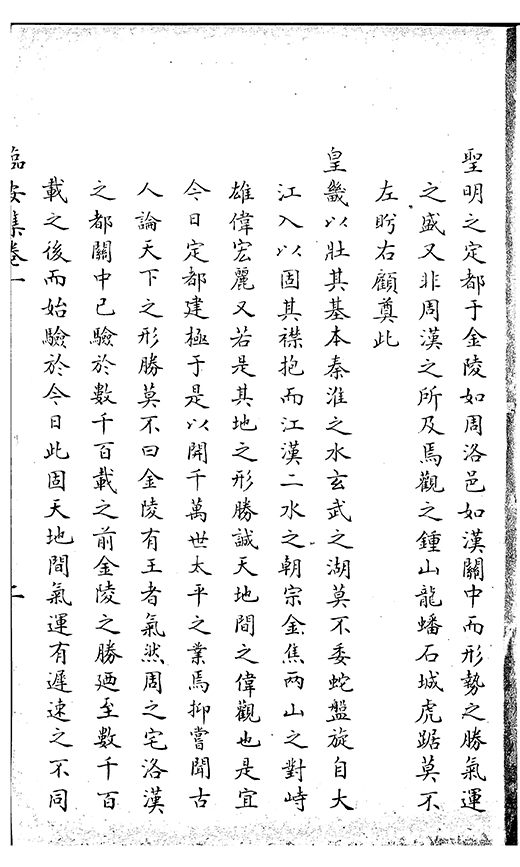 聖明之定都于金陵如周洛邑如漢關中而形勢之勝氣運
之盛又非周漢之所及焉觀之鍾山龍蟠石城虎踞莫不
左盻右顧奠此
皇畿以壯其基本秦淮之水玄武之湖莫不委蛇盤旋自大
江入以固其襟抱而江漢二水之朝宗金焦兩山之對峙
雄偉宏麗又若是其地之形勝誠天地間之偉觀也是宜
今日定都建極于是以開千萬世太平之業焉抑嘗聞古
人論天下之形勝莫不曰金陵有王者氣然周之宅洛漢
之都關中已驗於數千百載之前金陵之勝廼至數千百
載之後而始驗於今日此固天地間氣運有遲速之不同
臨安集卷一
二